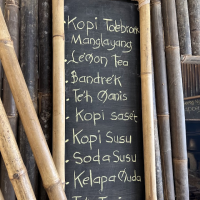 Kopi Toebrom
Manglayang
Lemon Tea
Bandrek
Teh Manis
Kopi saset
Kopi Susu
Soda Susu
Kelapa Muda